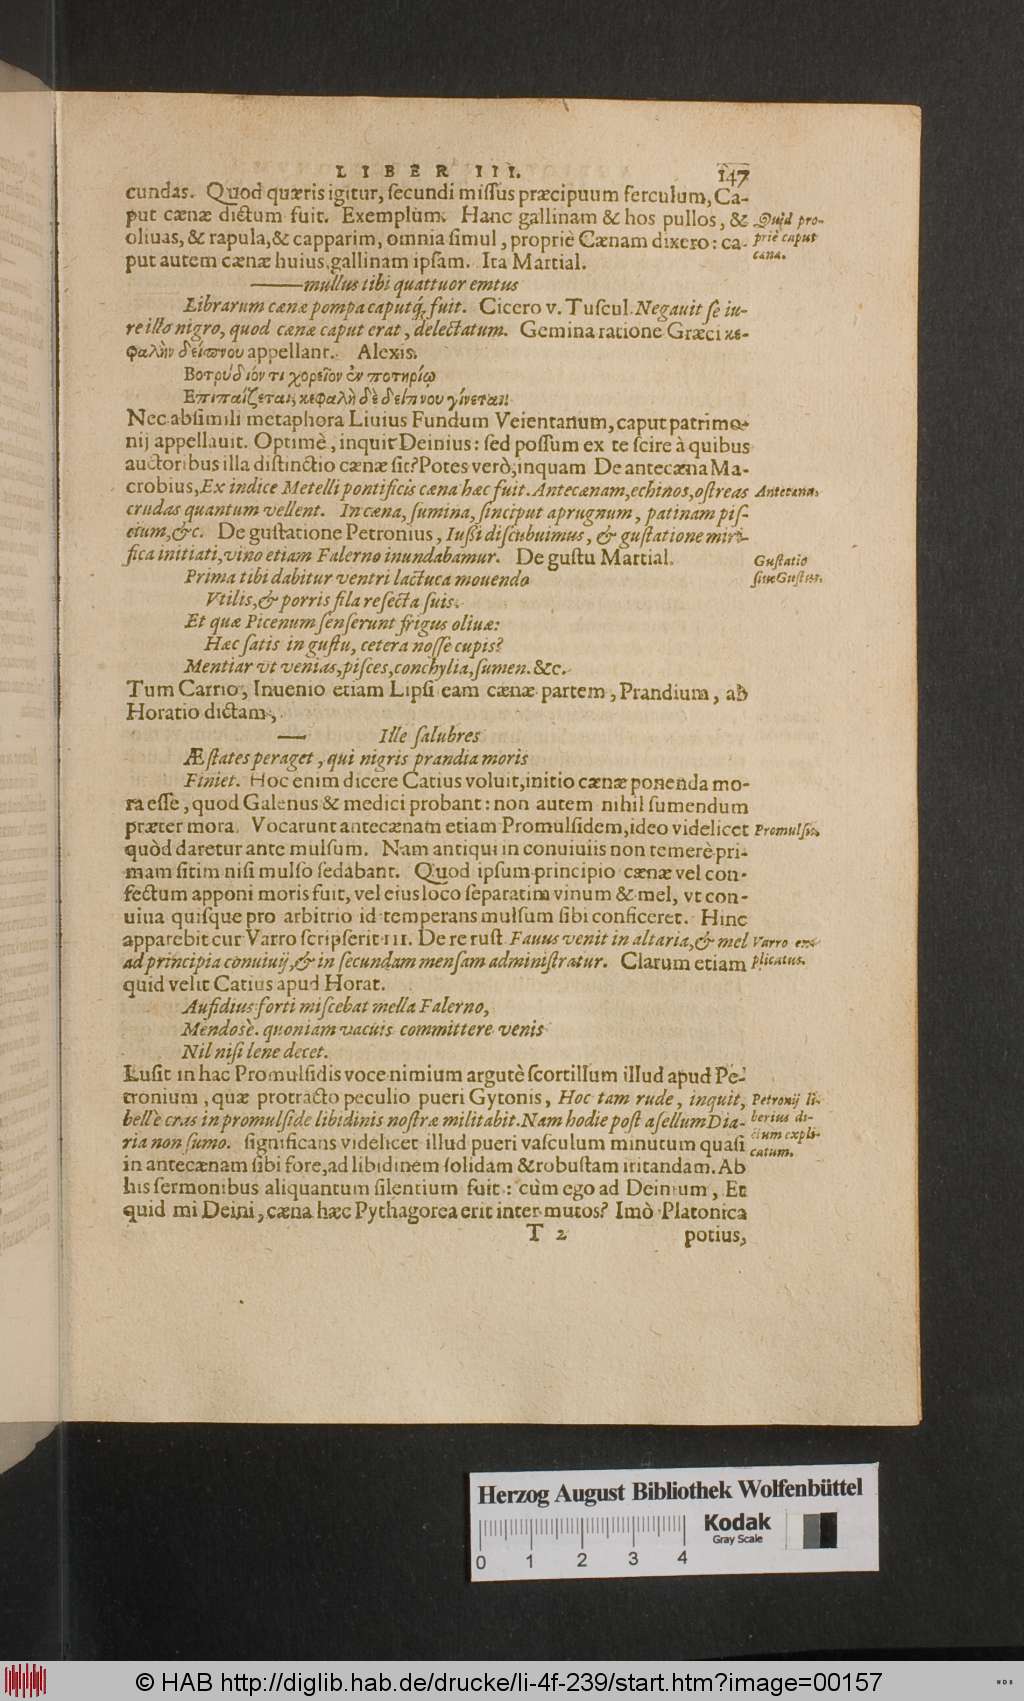 LIBER III. 147
cundas. Quod quæris igitur, secundi missus præcipuum ferculum, Ca-
put cænæ dictum fuit. Exemplum. Hanc gallinam & hos pullos, & Quid pro-
oliuas, & rapula, & capparim, omnia simul, propriè Cænam dixero: ca- priè caput
put autem cænæ huius, gallinam ipsam. Ita Martial. cæna.
——mullus tibi quattuor emtus
Librarum cænæ pompa caputq́; fuit. Cicero v. Tuscul. Negauit se iu-
re illo nigro, quod cænæ caput erat, delectatum. Gemina ratione Græci κε-
φαλὴν δείπνου appellant. Alexis.
Βοτρύδιόν τι χορεῖον ἐν ποτηρίῳ
Επιπαίζεται, κεφαλὴ δὲ δείπνου γίνεται.
Nec absimili metaphora Liuius Fundum Veientanum, caput patrimo-
nij appellauit. Optimè, inquit Deinius: sed possum ex te scire à quibus
auctoribus illa distinctio cænæ sit? Potes verò, inquam. De antecæna Ma-
crobius, Ex indice Metelli pontificis cæna hæc fuit. Antecænam, echinos, ostreas Antecæna.
crudas quantum vellent. In cæna, sumina, sinciput aprugnum, patinam pis-
cium, &c. De gustatione Petronius, Iussi discubuimus, & gustatione miri-
fica initiati, vino etiam Falerno inundabamur. De gustu Martial. Gustatio
Prima tibi dabitur ventri lactuca mouendo siue Gustus.
Vtilis, & porris fila resecta suis.
Et quæ Picenum senserunt frigus oliuæ:
Hæc satis in gustu, cetera nosse cupis?
Mentiar vt venias, pisces, conchylia, sumen. &c.
Tum Carrio, Inuenio etiam Lipsi eam cænæ partem, Prandium, ab
Horatio dictam,
—— Ille salubres
Æstates peraget, qui nigris prandia moris
Finiet. Hoc enim dicere Catius voluit, initio cænæ ponenda mo-
ra esse, quod Galenus & medici probant: non autem nihil sumendum
præter mora. Vocarunt antecænam etiam Promulsidem, ideo videlicet Promulsis.
quòd daretur ante mulsum. Nam antiqui in conuiuiis non temerè pri-
mam sitim nisi mulso sedabant. Quod ipsum principio cænæ vel con-
fectum apponi moris fuit, vel eius loco separatim vinum & mel, vt con-
uiua quisque pro arbitrio id temperans mulsum sibi conficeret. Hinc
apparebit cur Varro scripserit III. De re rust. Fauus venit in altaria, & mel Varro ex-
ad principia conuiuij, & in secundam mensam administratur. Clarum etiam plicatus.
quid velit Catius apud Horat.
Aufidius forti miscebat mella Falerno,
Mendosè. quoniam vacuis committere venis
Nil nisi lene decet.
Lusit in hac Promulsidis voce nimium argutè scortillum illud apud Pe-
tronium, quæ protracto peculio pueri Gytonis, Hoc tam rude, inquit, Petronij li-
bellè cras in promulside libidinis nostræ militabit. Nam hodie post asellum Dia- berius di-
ria non sumo. significans videlicet illud pueri vasculum minutum quasi ctum expli-
in antecænam sibi fore, ad libidinem solidam & robustam iritandam. Ab catum.
his sermonibus aliquantum silentium fuit: cùm ego ad Deinium, Et
quid mi Deini, cæna hæc Pythagorea erit inter mutos? Imò Platonica
T 2 potius,
Herzog August Bibliothek Wolfenbüttel
Kodak
Gray Scale
0 1 2 3 4
© HAB http://diglib.hab.de/drucke/li-4f-239/start.htm?image=00157